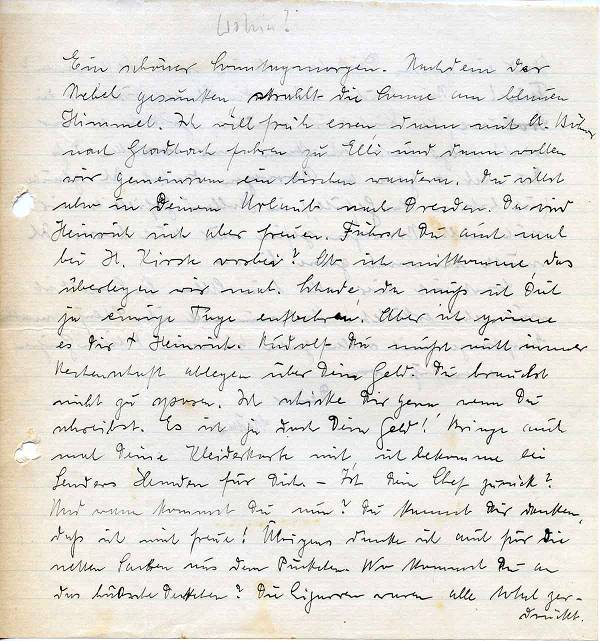 Ein schöner Sonntagmorgen. Nachdem der
Nebel gesunken strahlt die Sonne am blauen
Himmel. Ich will früh essen dann mit A.
nach Gladbach fahren zu Elli und dann wollen
wir gemeinsam ein bischen wandern. Du willst
also in Deinem Urlaub nach Dresden. Da wird
Heinrich sich aber freuen. Fährst Du auch mal
bei H. Kirsch vorbei? Ob ich mitkomme, das
überlegen wir mal. Schade, da muß ich Dich
ja einige Tage entbehren! Aber ich gönne
es Dir + Heinrich. Rudolf Du mußt nicht immer
Rechenschaft ablegen über Dein Geld. Du brauchst
nicht zu sparen. Ich schicke Dir gern wenn Du
schreibst. Es ist ja doch Dein Geld! Bringe auch
mal Deine Kleiderkarte mit, ich bekomme bei
Senders Hemden für Dich. – Ist Dein Chef zurück?
Und wann kommst Du nun? Du kannst Dir denken,
daß ich mich freue! Übrigens danke ich auch für die
netten Sachen aus dem Päckchen. Wo kommst Du an
das hübsche Deckchen? Die Zigarren waren alle total zer-
drückt.